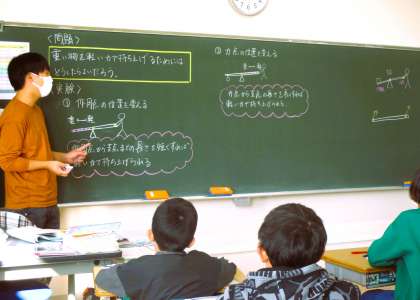 〈問題〉
重い物を軽い力で持ち上げるためには
どうしたらよいだろう。
〈実験〉
① 作用点の位置を変える
作用点から支点までの長さを短くすれば
軽い力で持ち上げられる
② 力点の位置を変える
力点から支点の長さを長くすれば
軽い力で持ち上げられる